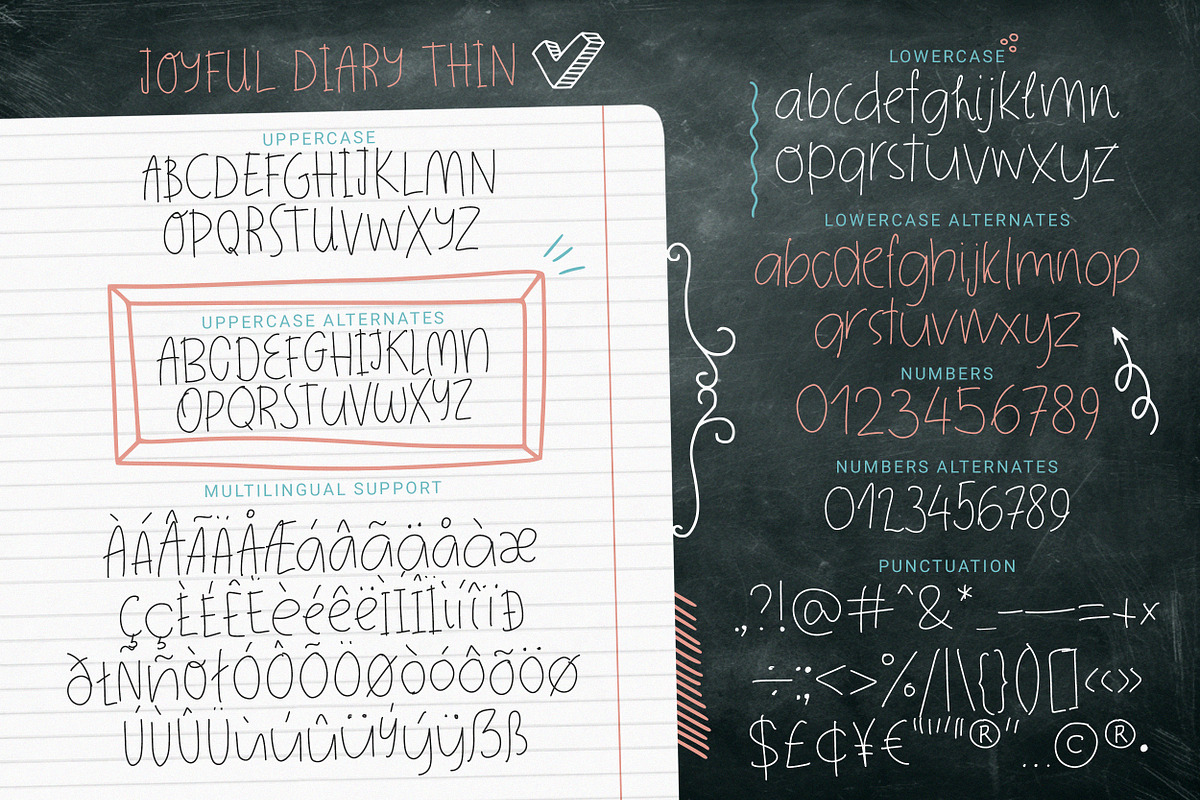 JOYFUL DIARY THIN
UPPERCASE
ABCDEFGHIJKLMN
OPQRSTUVWXYZ
UPPERCASE ALTERNATES
ABCDEFGHIJKLMN
OPQRSTUVWXYZ
MULTILINGUAL SUPPORT
ÀÁÂÃÄÅÆáâãäåàæ
ÇçÈÉÊËèéêëÌÍÎÏìíîïÐ
ðłÑñÒŁÓÔÕÖØòóôõöø
ÚÙÛÜùúûüÝýÿẞß
LOWERCASE
abcdefghijklmn
opqrstuvwxyz
LOWERCASE ALTERNATES
abcdefghijklmnop
qrstuvwxyz
NUMBERS
0123456789
NUMBERS ALTERNATES
0123456789
PUNCTUATION
.,?!@#^&*_–—=+×
÷:;<>%/|\{}()[]‹«»
$£¢¥€'"‘“®”…©®•